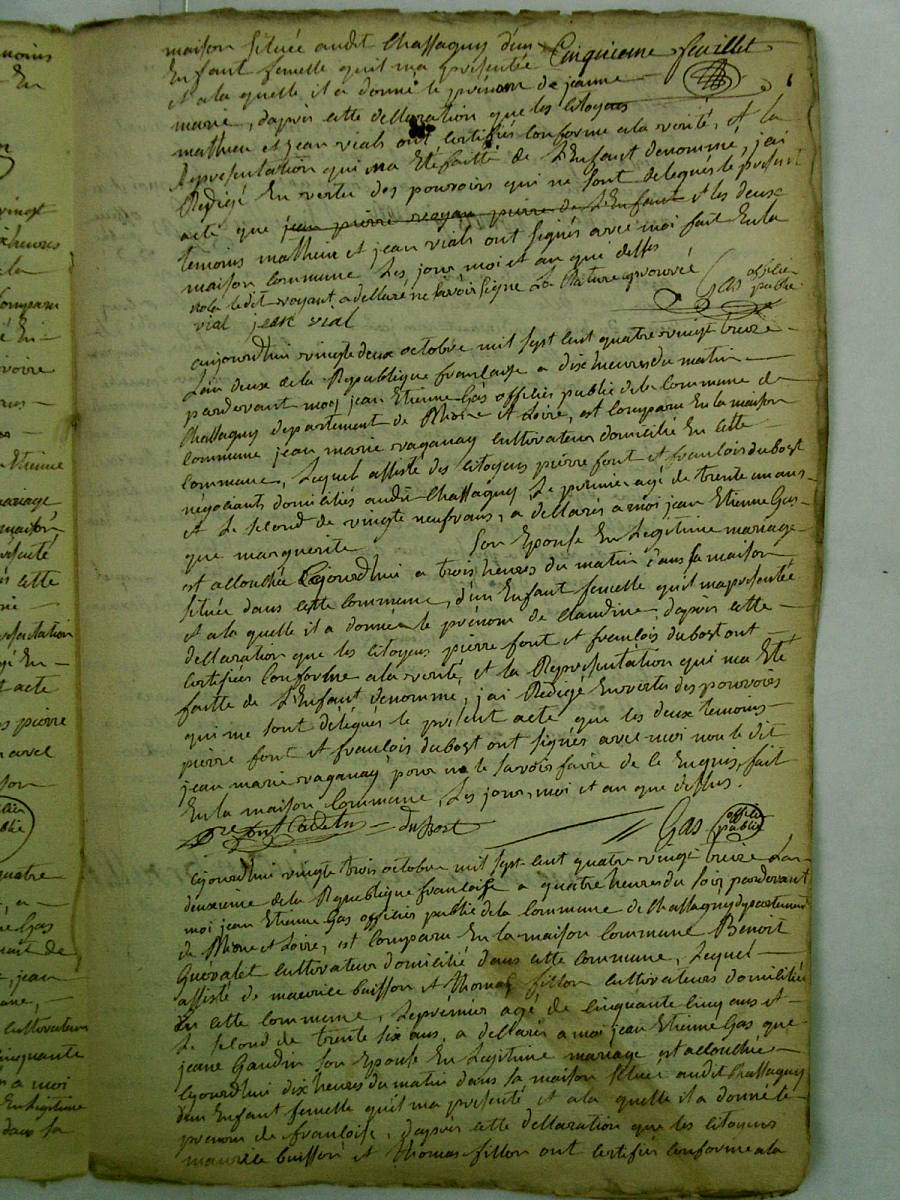 maison située audit Chassagny d'un Cinquieme feuillet
Enfant femelle quil ma présentée
et ala quelle il a donné le prénom de jeanne
marie, d'après cette déllaration que les Citoyens
mathieu et jean vials ont Certifiés Conforme ala vérité, et la
Représentation qui ma Eté faitte de L'Enfant dénommé, j'ai
Rédigé En vertu des pouvoirs qui me sont délégués le présent
acte que jean pierre voyant pierre de L'Enfant et les deux
temoins mathieu et jean vials ont signés avec moi fait En la
maison Commune Les jour, moi et an que dessus
ledit voyant a dellaré ne savoir signé La Rature approuvé
vial jean vial Gas officier public
aujourdhui vingt deux octobre mil sept cent quatre vingt treize
Lan deux de la Republique francaise a dix heures du matin
pardevant moi jean Etienne Gas officier public de la Commune de
Chassagny departement de Rhone et Loire, est Comparu En la maison
Commune jean marie vaganay Cultivateur domicilié En cette
Commune, Lequel assisté des Citoyens pierre font et francois dubost
négociants domiciliés audit Chassagny Le premier agé de trente un ans
et Le second de vingt neuf ans, a dellarés a moi jean Etienne Gas
que marguerite son Epouse En Légitime mariage
est accouchée Cejourdhui a trois heures du matin dans sa maison
située dans cette Commune, d'un Enfant femelle quil ma présentée
et ala quelle il a donné le prénom de claudine, d'après cette
dellaration que les Citoyens pierre font et francois dubost ont
Certifiés Conforme ala verité, et la Représentation qui ma Eté
faitte de L'Enfant dénommé, j'ai Rédigé En vertu des pouvoirs
qui me sont délégués le présent acte que les deux temoins
pierre font et francois dubost ont signés avec moi non le dit
jean marie vaganay pour ne le savoir faire de ce Enquis, fait
En la maison Commune, Les jour, moi et an que dessus.
dubost Gas officier public
Cejourdhui vingt trois octobre mil sept cent quatre vingt treize Lan
deuxieme de la Republique francaise a quatre heures du soir pardevant
moi jean Etienne Gas officier public de la Commune de Chassagny departement
de Rhone et Loire, est Comparu En la maison Commune Benoit
Cultivateur domicilié dans cette Commune, Lequel
assisté de maurice buisson et thomas fillon Cultivateurs domiciliés
En cette Commune, Le premier agé de cinquante cinq ans et
Le second de trente six ans, a dellarés a moi jean Etienne Gas que
jeane Gaudin son Epouse En Légitime mariage est accouchée
Cejourdhui dix heures du matin dans sa maison située audit Chassagny
d'un Enfant femelle quil ma présenté et ala quelle il a donné le
prénom de francoise, d'après cette dellaration que les Citoyens
maurice buisson et thomas fillon ont Certifiés Conforme ala